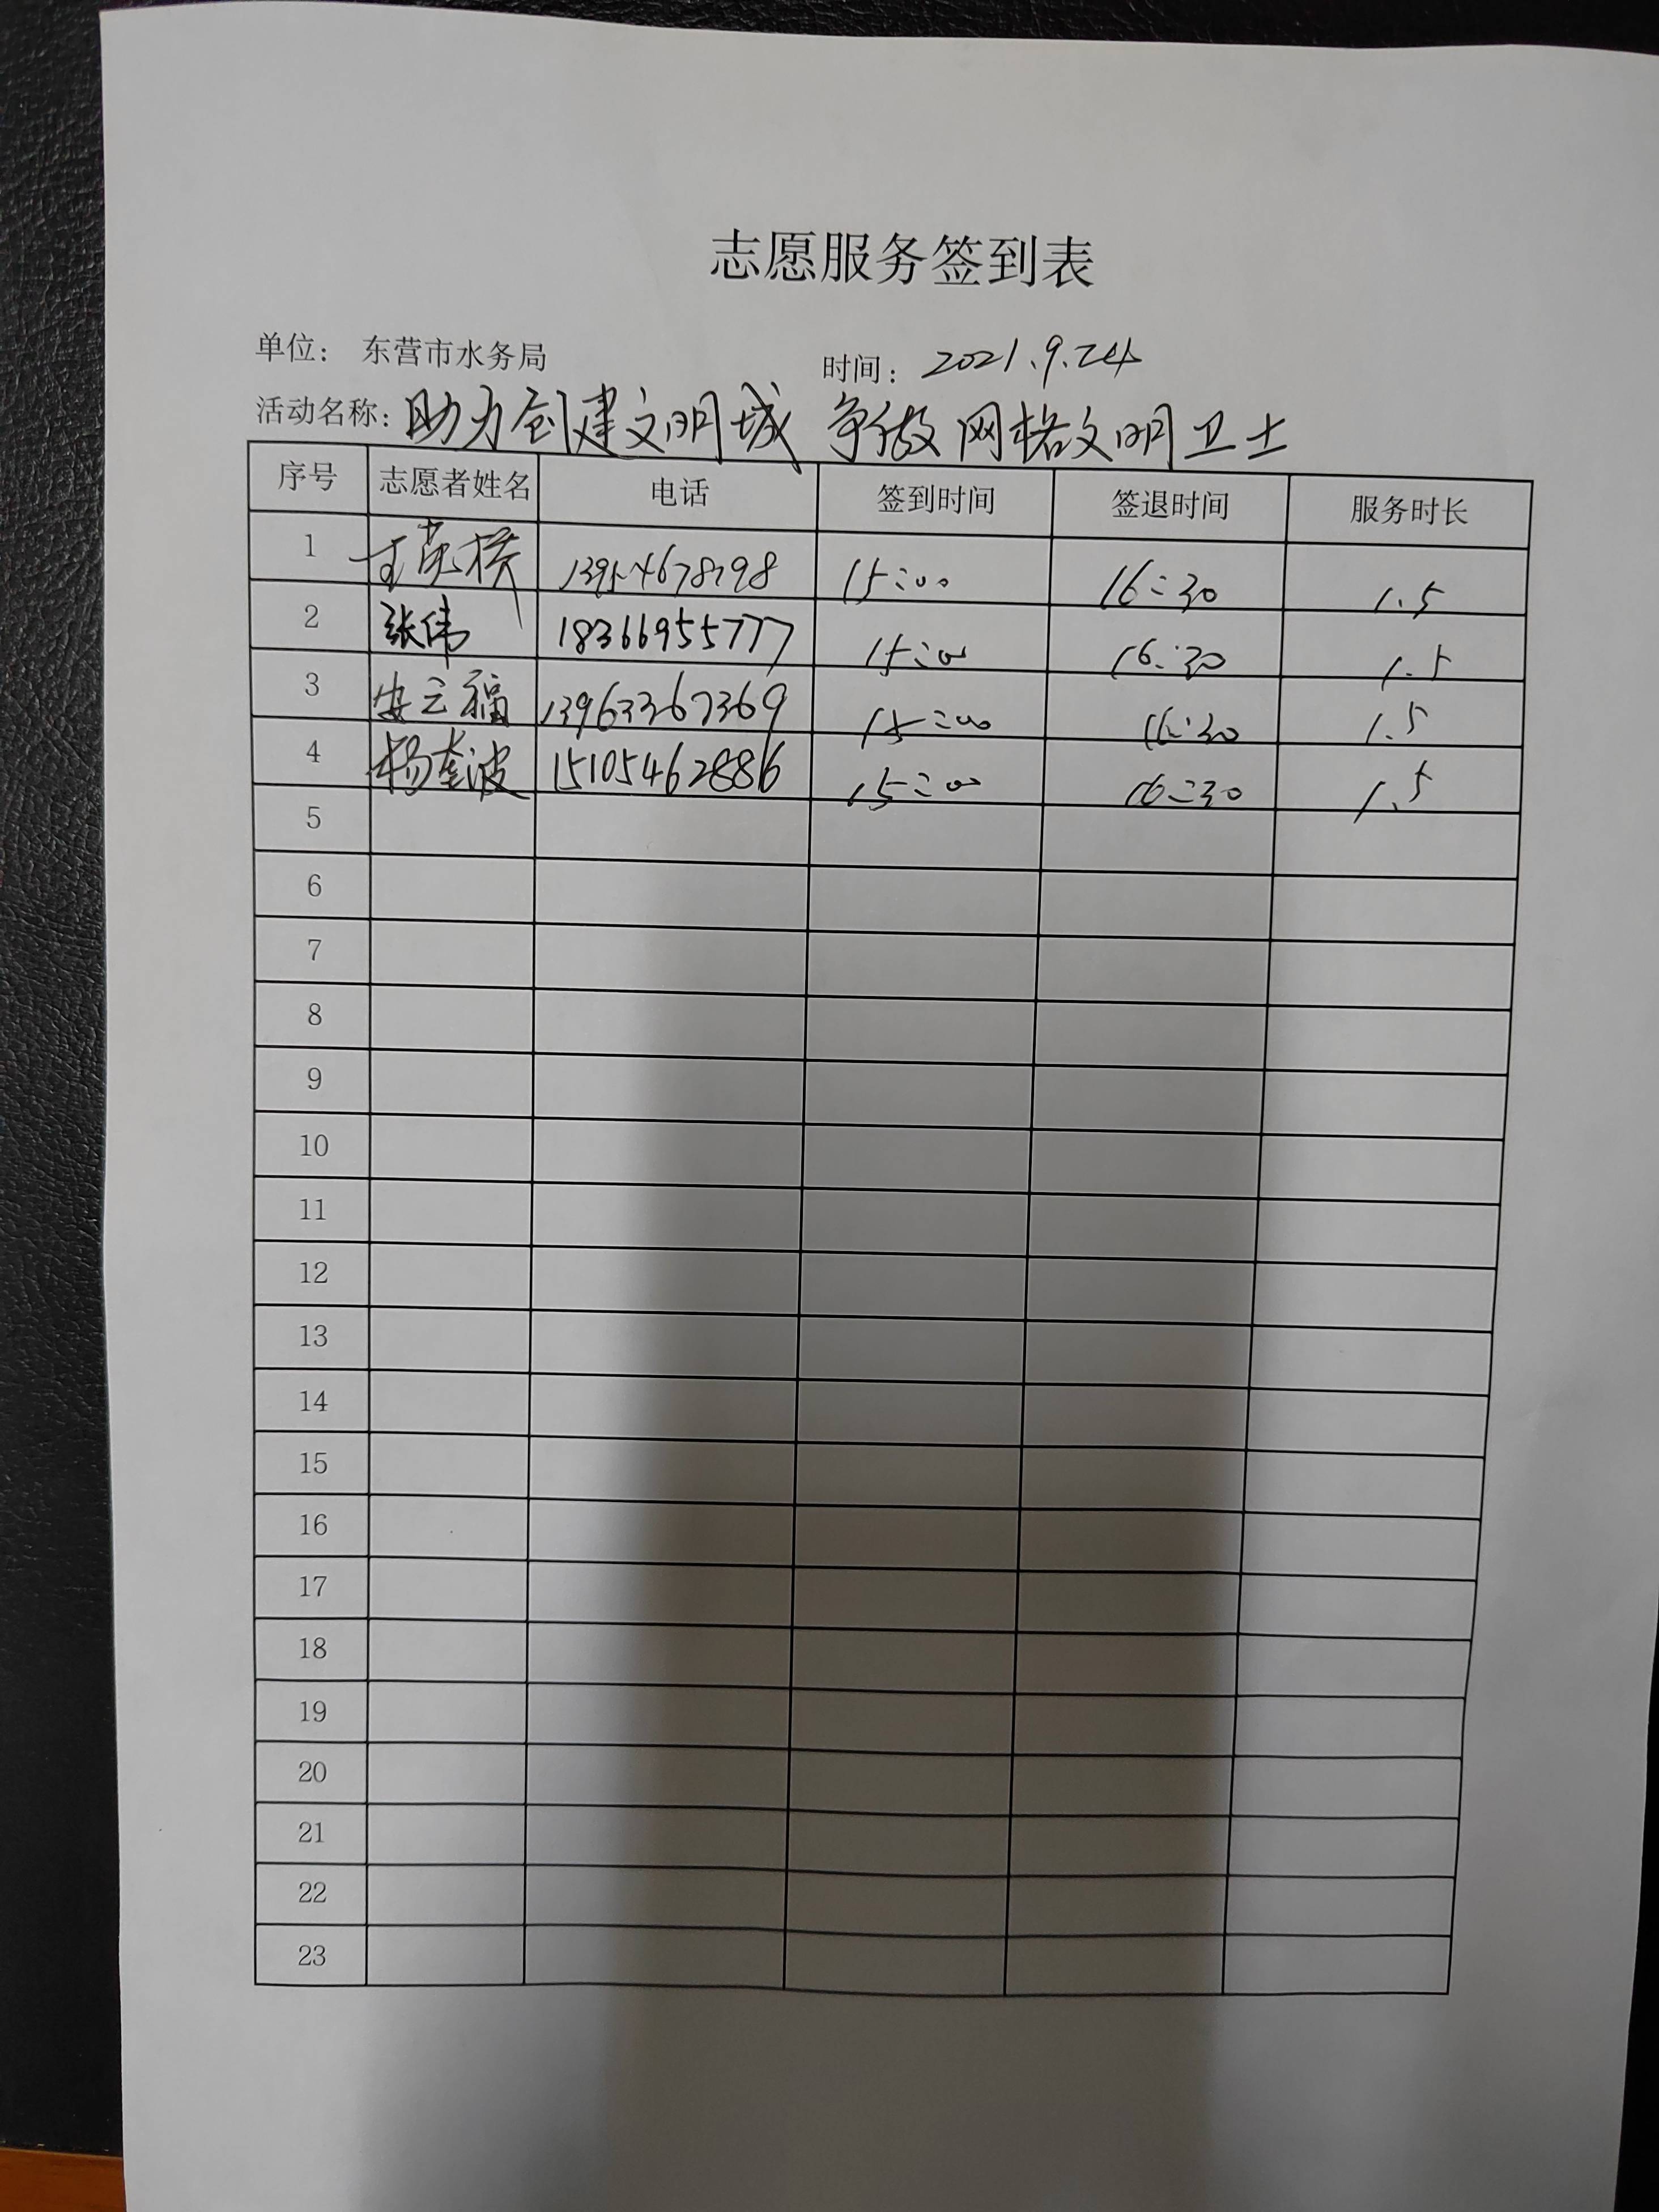 志愿服务签到表
单位： 东营市水务局 时间： 2021.9.24
活动名称: 助力创建文明城 争做网格文明卫士
序号 志愿者姓名 电话 签到时间 签退时间 服务时长
1 15:00 16:30 1.5
2 张伟 18366955777 15:00 16:30 1.5
3 安云福 13963367369 15:00 16:30 1.5
4 杨奎波 15105462886 15:00 16:30 1.5
5
6
7
8
9
10
11
12
13
14
15
16
17
18
19
20
21
22
23